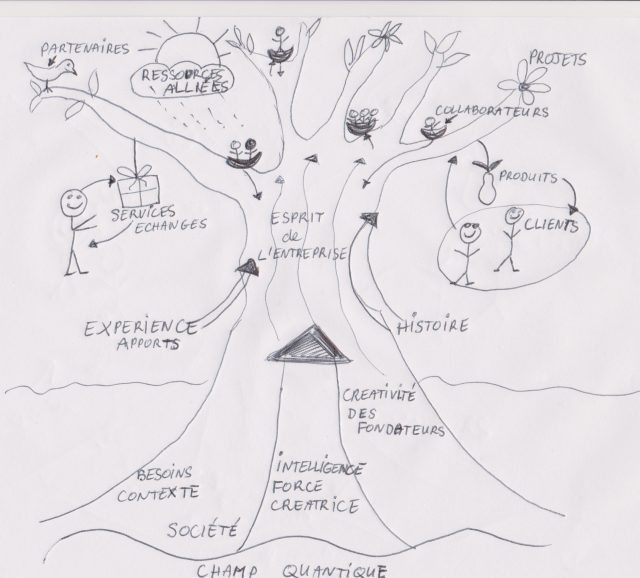 PARTENAIRES
RESSOURCES
ALLIÉES
PROJETS
COLLABORATEURS
PRODUITS
SERVICES
ECHANGES
ESPRIT
de
L'ENTREPRISE
CLIENTS
EXPERIENCE
APPORTS
HISTOIRE
CREATIVITÉ
DES
FONDATEURS
BESOINS
CONTEXTE
INTELLIGENCE
FORCE
CREATRICE
SOCIÉTÉ
CHAMP QUANTIQUE